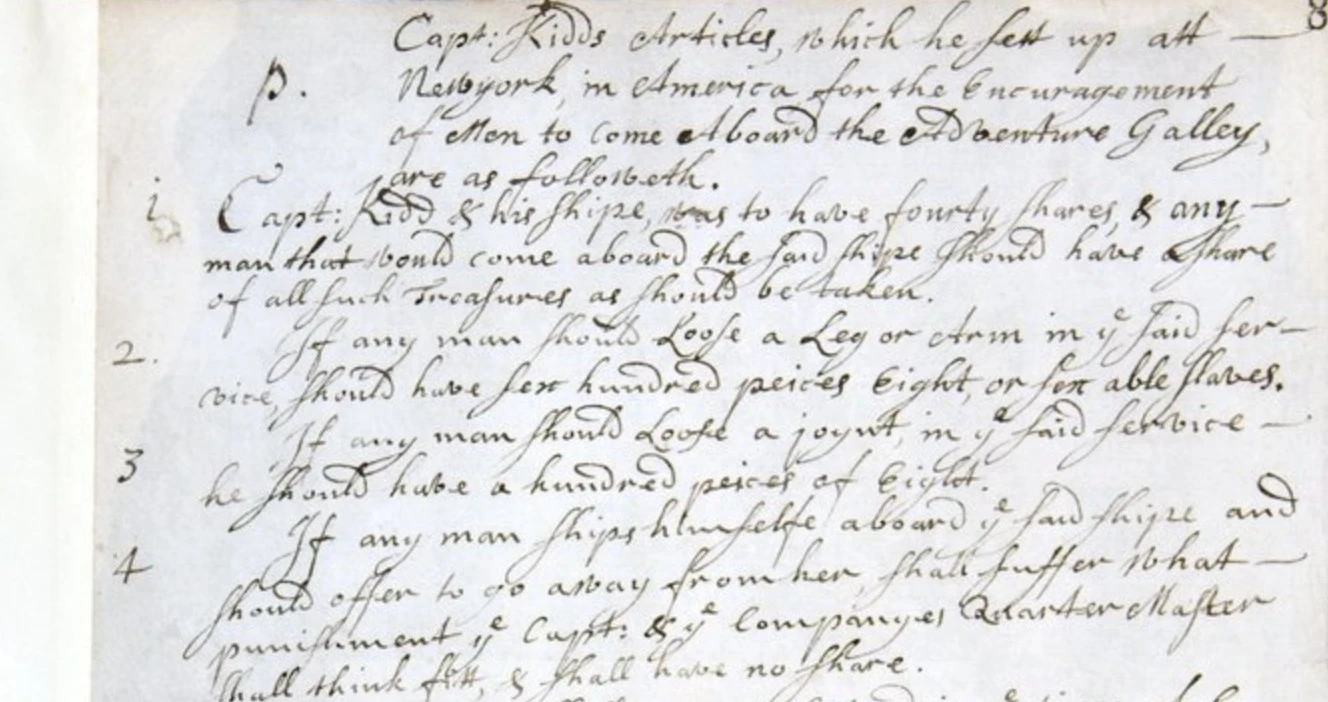 8
Capt: Kidds Articles, which he sett up att —
p. Newyork, in America for the Encuragement
of Men to come Aboard the Adventure Galley,
are as followeth.
1 Capt: Kidd & his shipe, was to have fourty shares, & any —
man that would come aboard the said shipe should have a share
of all such Treasures as should be taken.
2. If any man should Loose a Leg or Arm in yᵉ said ser-
vice, should have sex hundred peices Eight, or sex able slaves.
3 If any man should Loose a joynt, in yᵉ said service —
he should have a hundred peices of Eight.
4 If any man ships himselfe aboard yᵉ said shipe and
should offer to go away from her, shall suffer what —
punishment yᵉ Capt: & yᵉ Companyes Quarter Master
shall think fitt, & shall have no share.